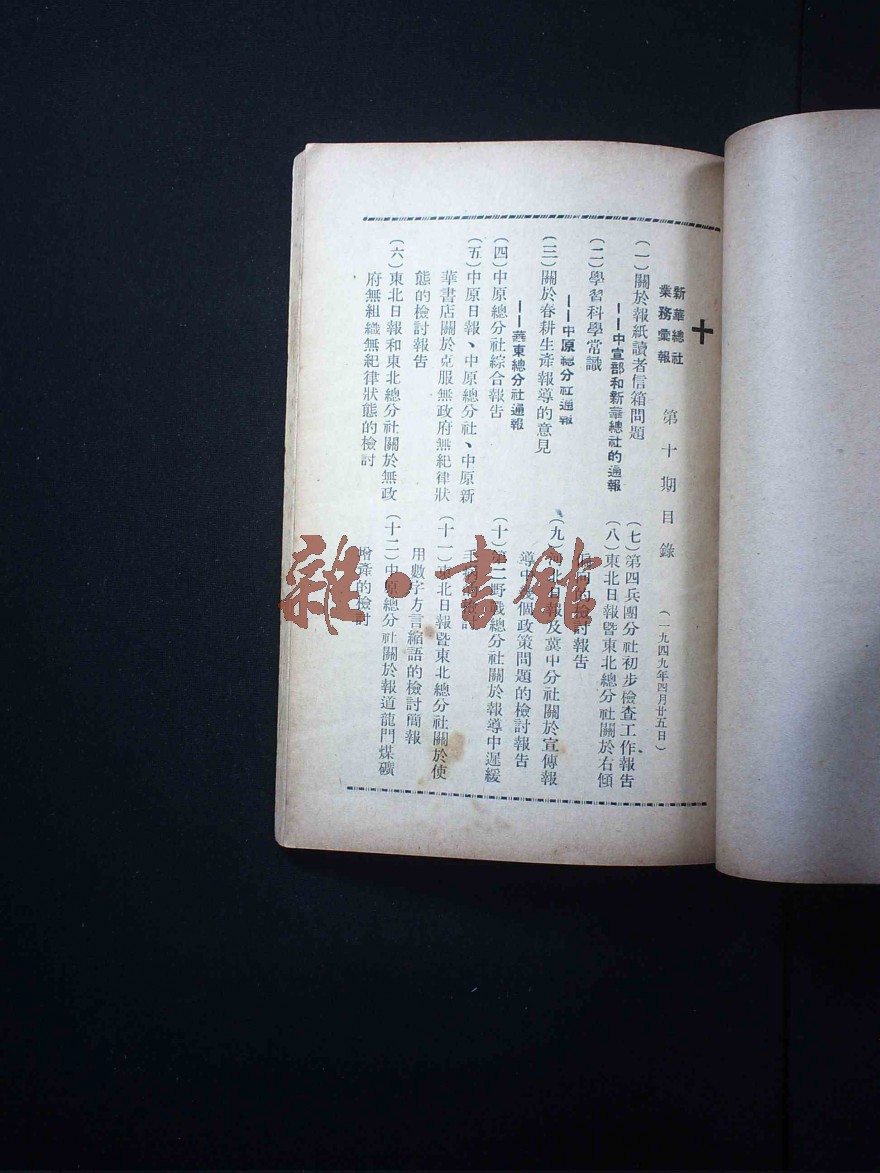 十
新華總社
業務彙報
第十期目錄
(一九四九年四月廿五日)
(一)關於報紙讀者信箱問題
——中宣部和新華總社的通報
(二)學習科學常識
——中原總分社通報
(三)關於春耕生產報導的意見
——華東總分社通報
(四)中原總分社綜合報告
(五)中原日報、中原總分社、中原新
華書店關於克服無政府無紀律狀
態的檢討報告
(六)東北日報和東北總分社關於無政
府無組織無紀律狀態的檢討
(七)第四兵團分社初步檢查工作報告
(八)東北日報暨東北總分社關於右傾
偏向的檢討報告
(九)河北日報及冀中分社關於宣傳報
導中 個政策問題的檢討報告
(十)第二野戰總分社關於報導中遲緩
檢討
(十一)東北日報暨東北總分社關於使
用數字方言縮語的檢討簡報
(十二)中原總分社關於報道龍門煤礦
增產的檢討
雜·書館